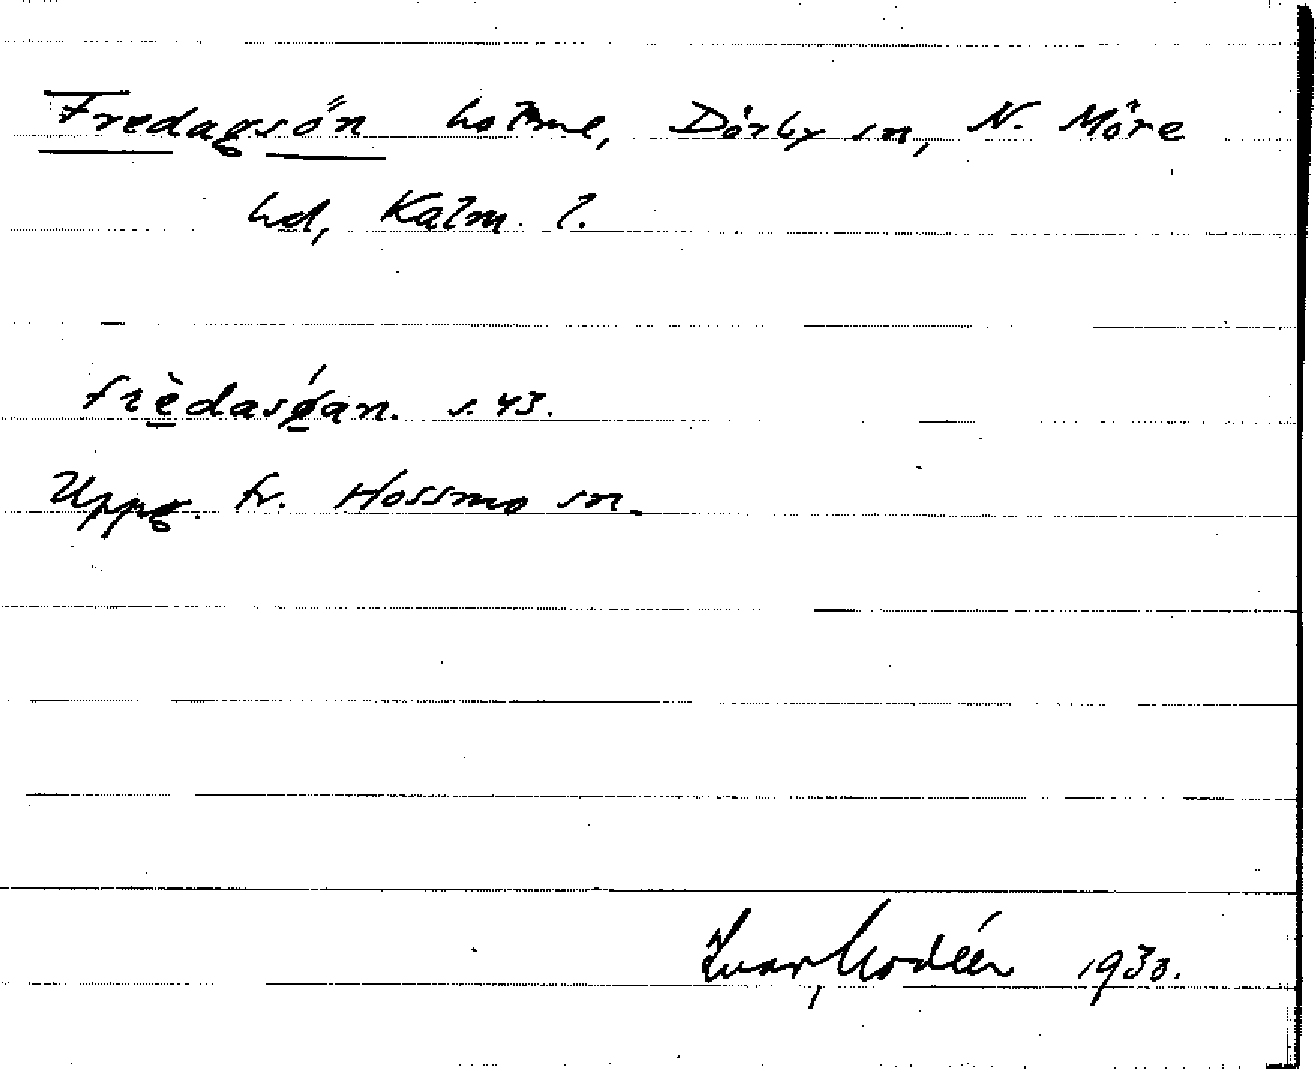 Fredagsön holme, Dörby sn, N. Möre
hd, Kalm. l.
frèdasǿan. s. 43.
Uppg. fr. Hossmo sn.
Ivar Modéer 1930.